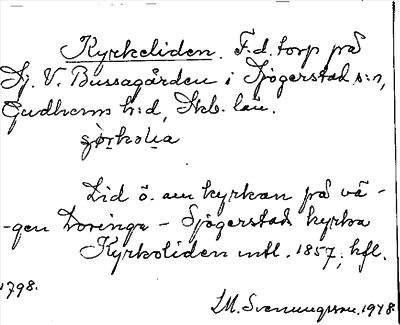 Kyrkeliden. F.d. torp på
Sj. V. Bussagården i Sjogerstad s:n,
Gudhems h:d, Skb. län.
Lid ö. om kyrkan på vä-
-gen Voringa - Sjögerstads kyrka
Kyrkoliden mtl. 1857, hfl.
1798.
I.M. Svennungsson. 1978.